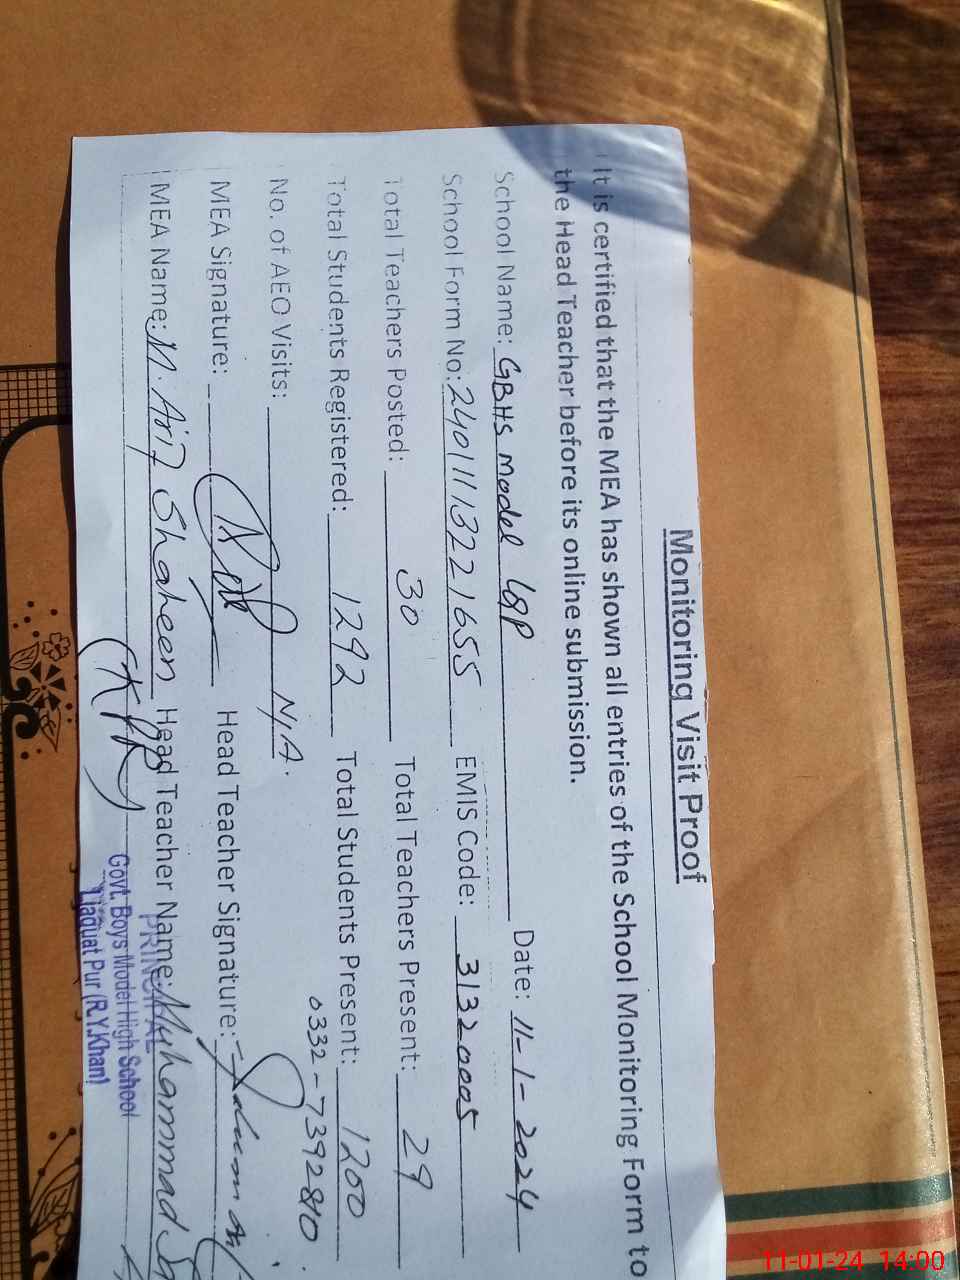 Monitoring Visit Proof
It is certified that the MEA has shown all entries of the School Monitoring Form to
the Head Teacher before its online submission.
School Name: GBHS model LQP Date: 11-1-2024
School Form No: 24011113221655 EMIS Code: 31320005
Total Teachers Posted: 30 Total Teachers Present: 29
Total Students Registered: 1292 Total Students Present: 1200
No. of AEO Visits: N/A. 0332-7392810
MEA Signature: Head Teacher Signature:
MEA Name: M. Arif Shaheen Head Teacher Name: Muhammad
PRINCIPAL
Govt. Boys Model High School
Liaquat Pur (R.Y.Khan)
11-01-24 14:00